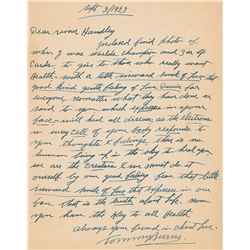 Sept 3/1953
Dear Handley
Inclosed find photo of
when I was worlds champion and 3 or 4
Cards, to give to those who really want
Health with a little inward smile of Love the
good kind gentle feeling of Love Divine for
everyone, no matter what they have done or
said to you which expresses in your
face will heal all disease as the electrons
in every cell of your body responde to
your thoughts & feelings, there is no
human being or in the sky to heal you
are the Creator & we must do it
ourself by our good feeling from that little
inward smile of love that expresses in our
face, that is the truth about life. now
you have the Key to all Health,
always your friend in christ Love
Tommy Burns